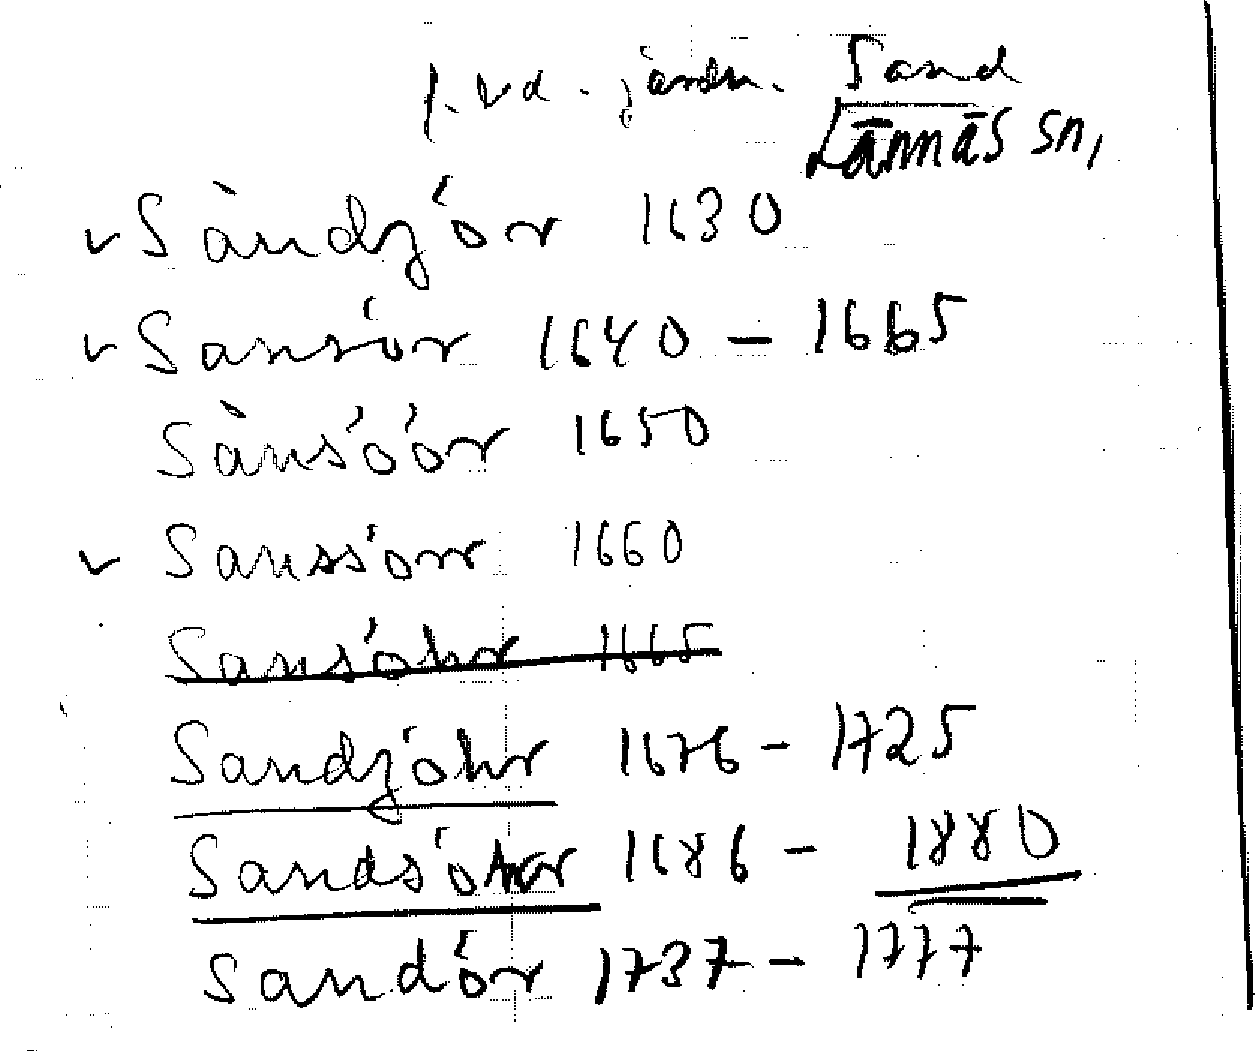 f.vd. jämdn. Sand
Lännäs sn,
✓ Sàndjór 1630
✓ Sansór 1640 – 1665
Sànsóór 1650
✓ Sanssórr 1660
Sansóhr 1665
Sandjóhr 1676 – 1725
Sandsóhr 1686 – 1880
Sandór 1737 – 1777